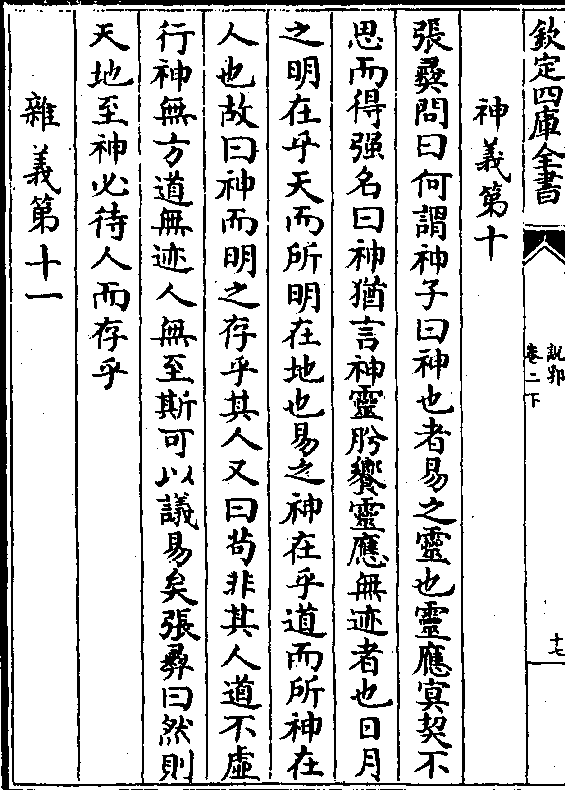 欽定四庫全書
說郛
卷二下
十七
神義第十
張彝問曰何謂神子曰神也者易之靈也靈應冥契不
思而得强名曰神猶言神靈肸饗靈應無迹者也日月
之明在乎天而所明在地也易之神在乎道而所神在
人也故曰神而明之存乎其人又曰苟非其人道不虛
行神無方道無迹人無至斯可以議易矣張彝曰然則
天地至神必待人而存乎
雜義第十一